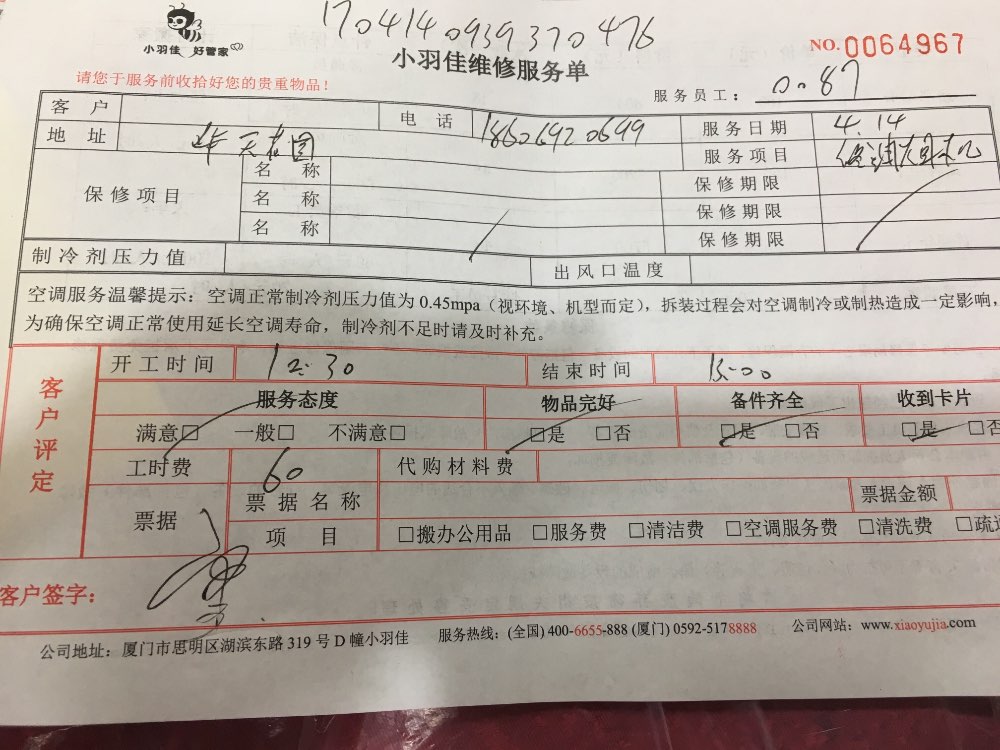 170414 0939370476
小羽佳 好管家
小羽佳维修服务单
NO.0064967
请您于服务前收拾好您的贵重物品！
服务员工：0087
客 户 电 话 18606920699 服务日期 4.14
地 址 华天花园 服务项目
保修项目 名 称 保修期限
名 称 保修期限
名 称 保修期限
制冷剂压力值 出风口温度
空调服务温馨提示：空调正常制冷剂压力值为 0.45mpa（视环境、机型而定），拆装过程会对空调制冷或制热造成一定影响，
为确保空调正常使用延长空调寿命，制冷剂不足时请及时补充。
客户评定
开工时间 12:30 结束时间 13:00
服务态度 物品完好 备件齐全 收到卡片
满意□ 一般□ 不满意□ □是 □否 □是 □否 □是 □否
工时费 60 代购材料费
票据 票据名称 票据金额
项 目 □搬办公用品 □服务费 □清洁费 □空调服务费 □清洗费 □疏
客户签字：
公司地址：厦门市思明区湖滨东路 319 号 D 幢小羽佳 服务热线：(全国) 400-6655-888 (厦门) 0592-5178888 公司网站：www.xiaoyujia.com